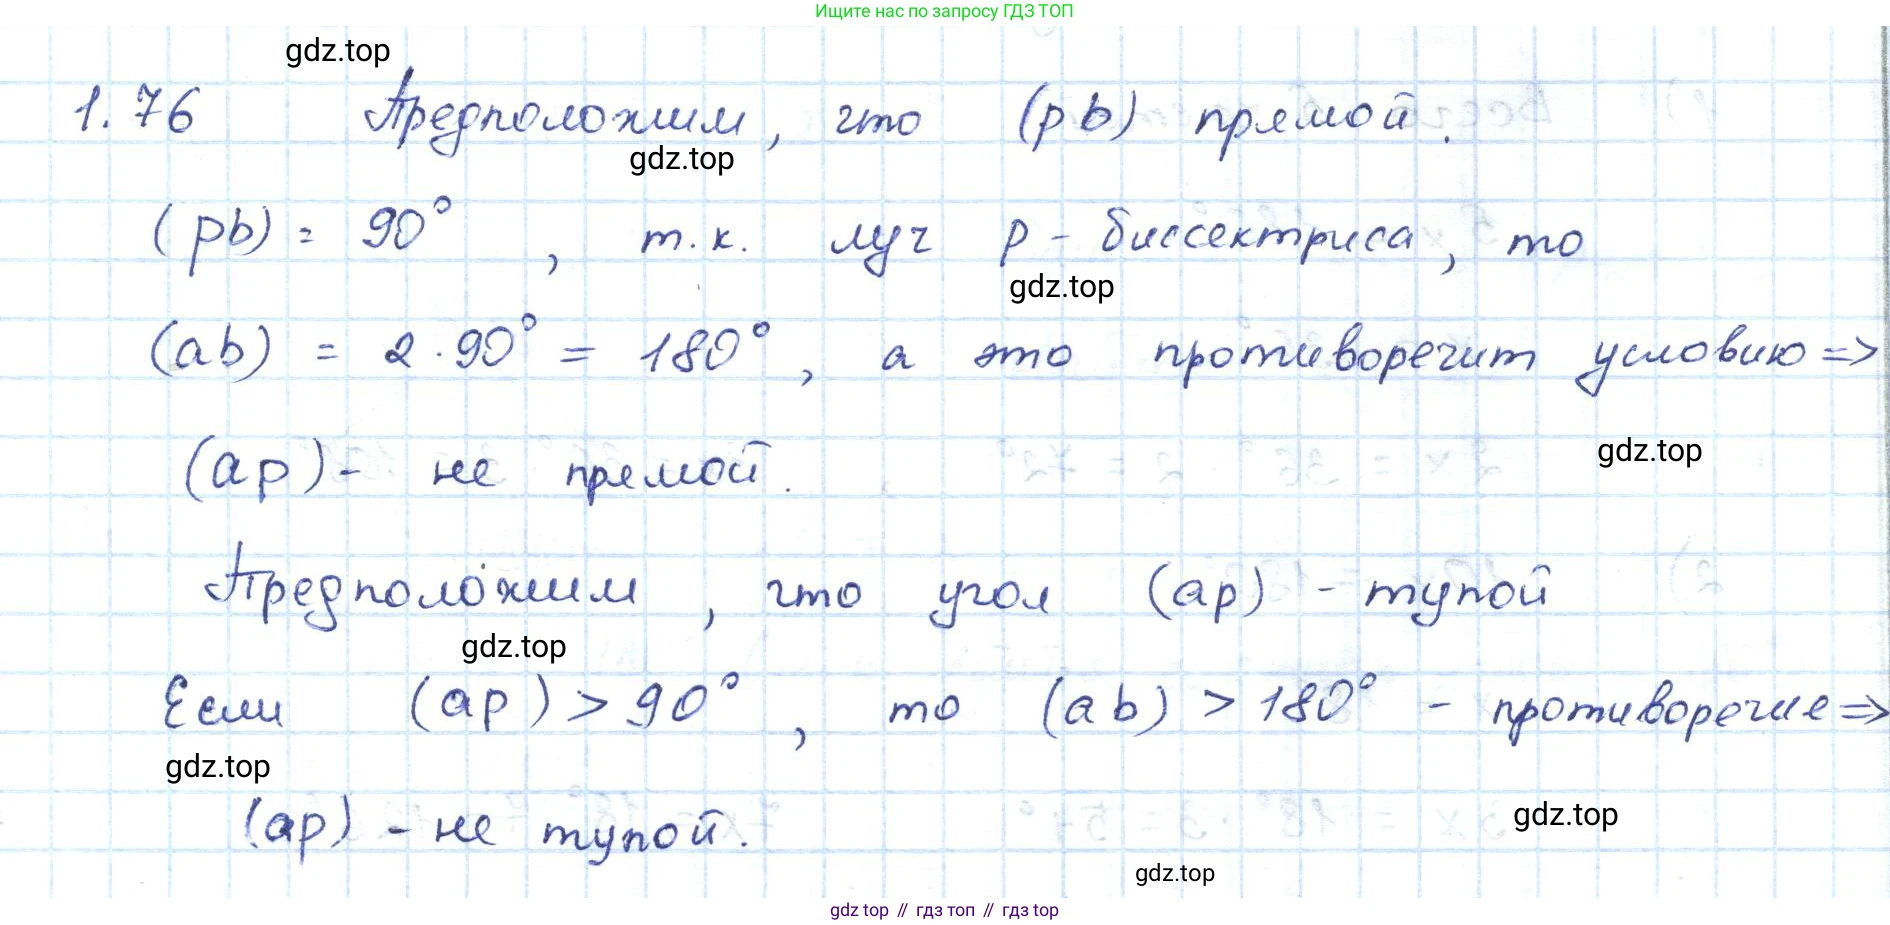 Ищите нас по запросу ГДЗ ТОП
gdz.top
1.76 Предположим, что (pb) прямой.
gdz.top
(pb) = 90°, т.к. луч p - биссектриса, то
gdz.top
(ab) = 2 · 90° = 180°, а это противоречит условию =>
gdz.top
(ap) - не прямой.
Предположим, что угол (ap) - тупой
gdz.top
Если (ap) > 90°, то (ab) > 180° - противоречие =>
gdz.top
gdz.top
(ap) - не тупой.
gdz.top
gdz top // гдз топ // гдз top